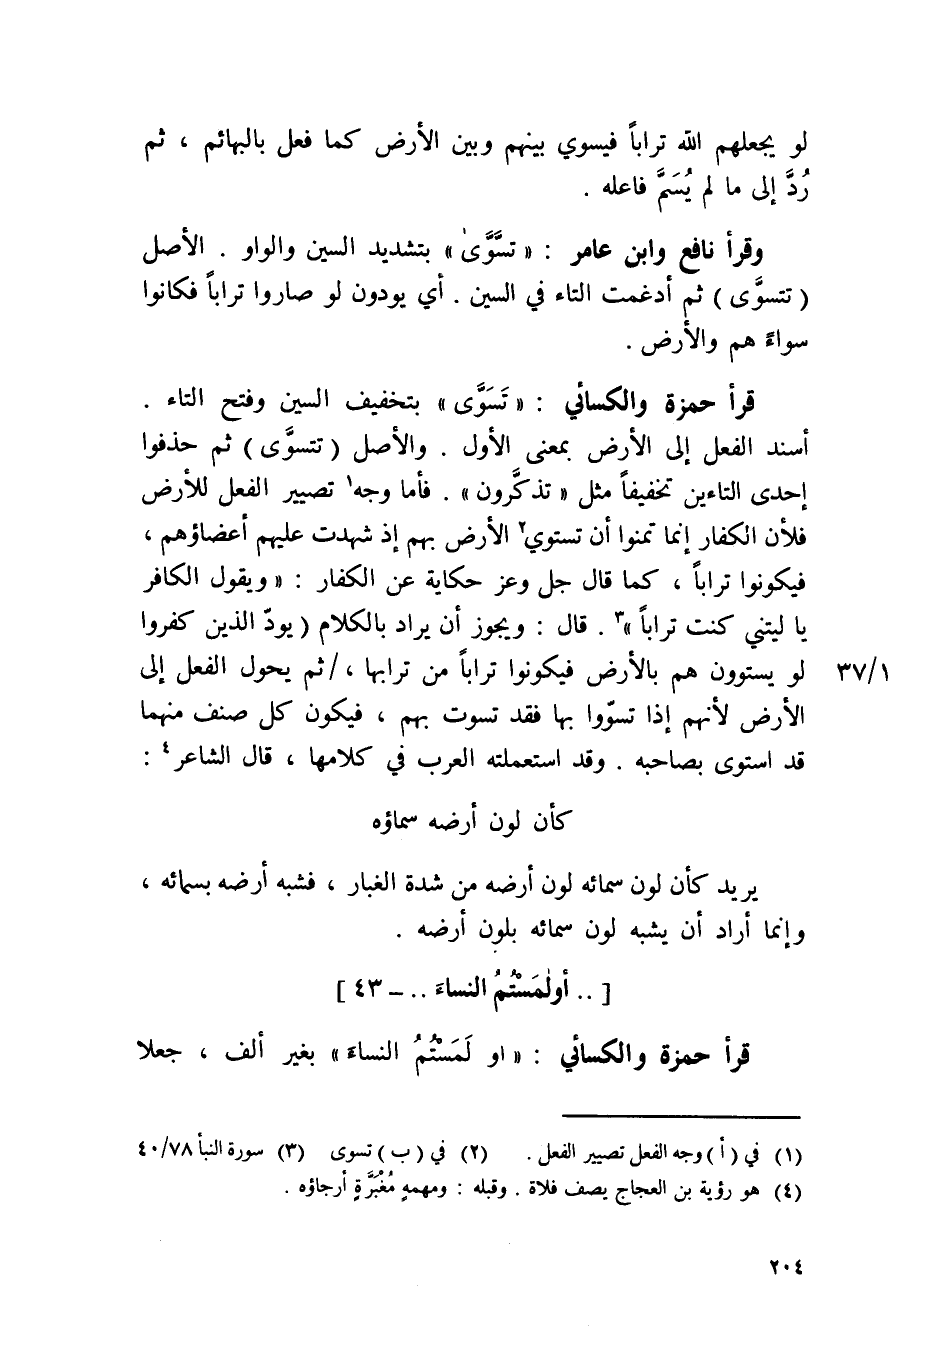 لو يجعلهم الله تراباً فيسوي بينهم وبين الأرض كما فعل بالبهائم ، ثم
رُدَّ إلى ما لم يُسَمَّ فاعله .
وقرأ نافع وابن عامر : « تسَّوَّىٰ » بتشديد السين والواو . الأصل
( تتسوَّى ) ثم أدغمت التاء في السين . أي يودون لو صاروا تراباً فكانوا
سواءً هم والأرض .
قرأ حمزة والكسائي : « تَسَوَّى » بتخفيف السين وفتح التاء .
أسند الفعل إلى الأرض بمعنى الأول . والأصل ( تتسوَّى ) ثم حذفوا
إحدى التاءين تخفيفاً مثل « تذكَّرون » . فأما وجه١ تصيير الفعل للأرض
فلأن الكفار إنما تمنوا أن تستوي٢ الأرض بهم إذ شهدت عليهم أعضاؤهم ،
فيكونوا تراباً ، كما قال جل وعز حكاية عن الكفار : « ويقول الكافر
يا ليتني كنت تراباً »٣ . قال : ويجوز أن يراد بالكلام ( يودّ الذين كفروا
لو يستوون هم بالأرض فيكونوا تراباً من ترابها ، / ثم يحول الفعل إلى ٣٧/١
الأرض لأنهم إذا تسوّوا بها فقد تسوت بهم ، فيكون كل صنف منهما
قد استوى بصاحبه . وقد استعملته العرب في كلامها ، قال الشاعر٤ :
كأن لون أرضه سماؤه
يريد كأن لون سمائه لون أرضه من شدة الغبار ، فشبه أرضه بسمائه ،
وإنما أراد أن يشبه لون سمائه بلون أرضه .
[ .. أو لٰمَسْتُمُ النساءَ .. – ٤٣ ]
قرأ حمزة والكسائي : « او لَمَسْتُمُ النساءَ » بغير ألف ، جعلا
(١) في ( أ ) وجه الفعل تصيير الفعل . (٢) في ( ب ) تسوى (٣) سورة النبأ ٤٠/٧٨
(٤) هو رؤبة بن العجاج يصف فلاة . وقبله : ومهمهٍ مُغْبَرَّةٍ أرجاؤه .
٢٠٤